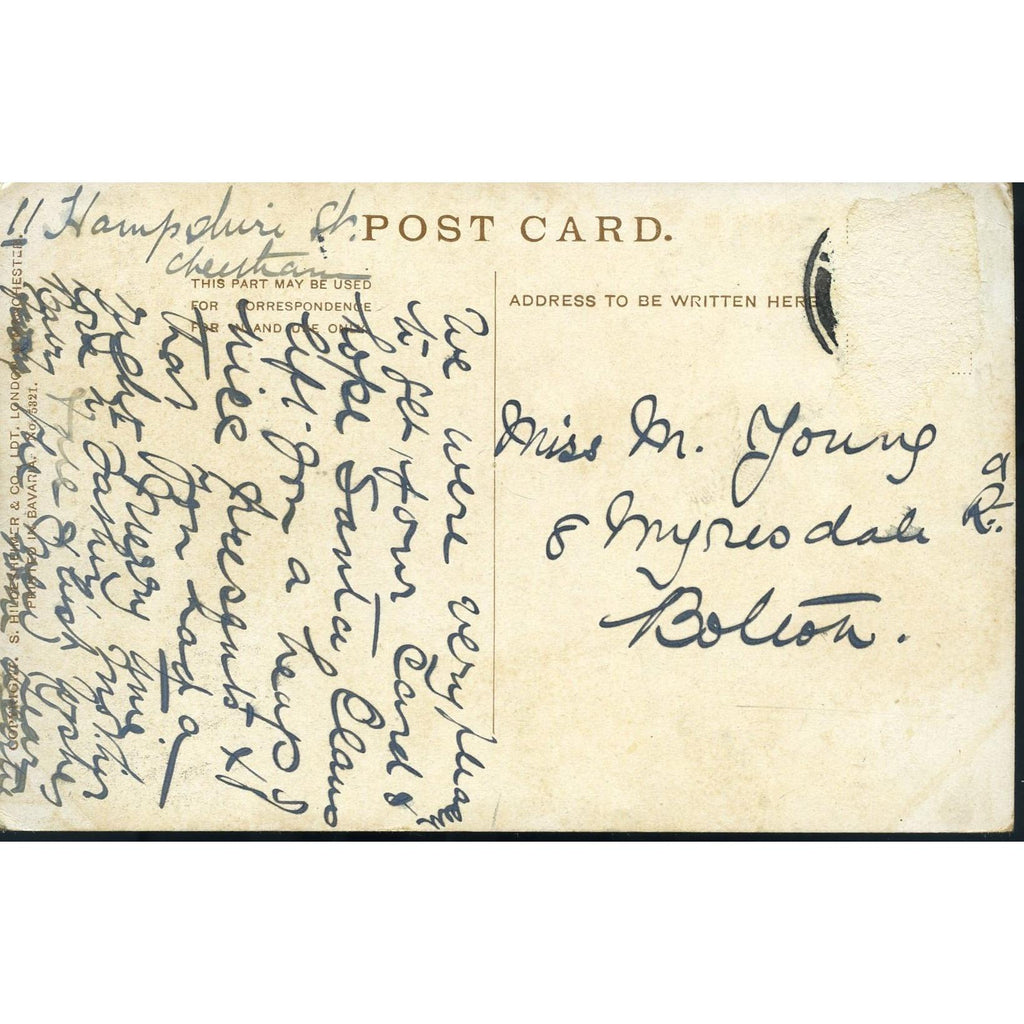 11 Hampshire St.
Cheetham
POST CARD.
THIS PART MAY BE USED
FOR CORRESPONDENCE
FOR INLAND USE ONLY.
ADDRESS TO BE WRITTEN HERE
We were very pleased
to get your Card &
hope Santa Claus
left you a heap of
nice presents &
that you had a
right Merry time.
love to Family
&
Miss M. Young
8 Myresdale Rd
Bolton.
COPYRIGHT. S. HILDESHEIMER & CO., LDT. LONDON & MANCHESTER.
PRINTED IN BAVARIA. No. 5321.